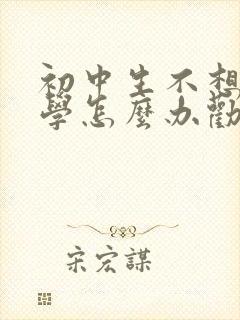 初中生不想
學怎麼办勸
宋宏謀